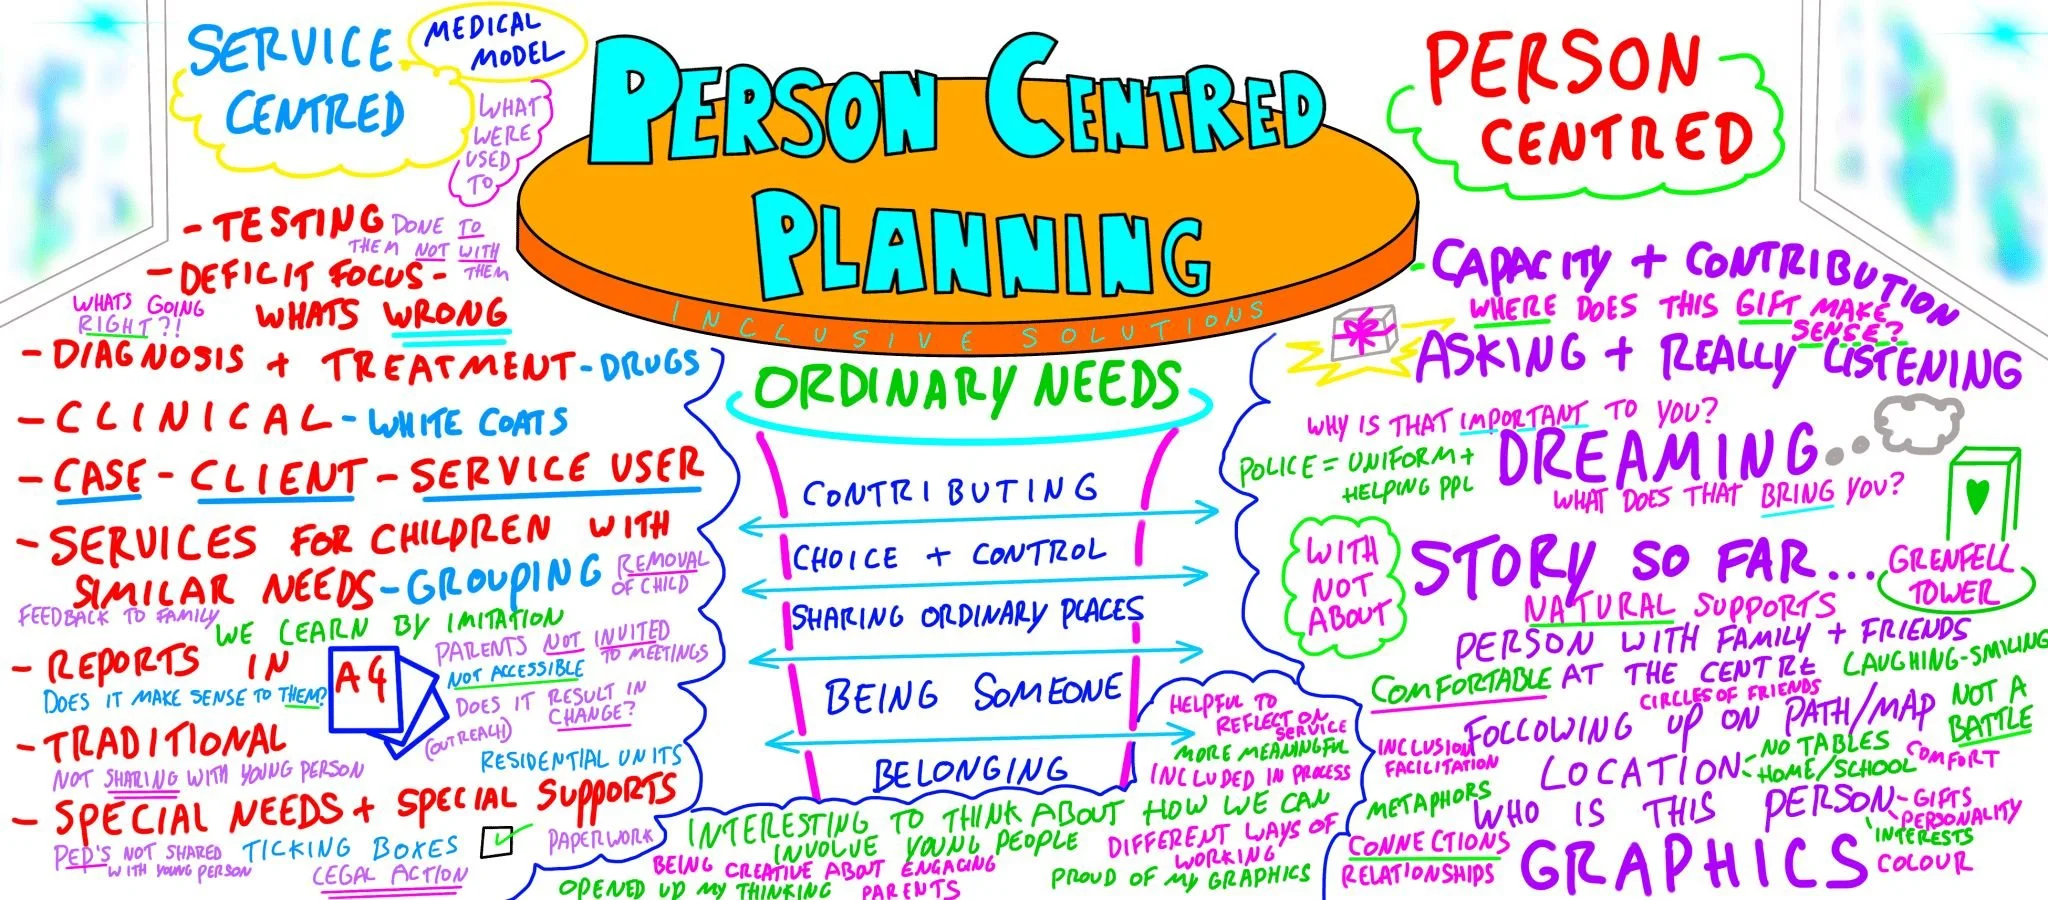 SERVICE
CENTRED
MEDICAL
MODEL
WHAT
WERE
USED
TO
- TESTING
DONE TO
THEM NOT WITH
THEM
- DEFICIT FOCUS -
WHATS WRONG
WHATS GOING
RIGHT?!
- DIAGNOSIS + TREATMENT - DRUGS
- CLINICAL - WHITE COATS
- CASE - CLIENT - SERVICE USER
- SERVICES FOR CHILDREN WITH
SIMILAR NEEDS - GROUPING
REMOVAL
OF CHILD
FEEDBACK TO FAMILY
WE LEARN BY IMITATION
- REPORTS IN
A4
PARENTS NOT INVITED
TO MEETINGS
NOT ACCESSIBLE
DOES IT MAKE SENSE TO THEM?
DOES IT RESULT IN
CHANGE?
(OUTREACH)
- TRADITIONAL
RESIDENTIAL UNITS
NOT SHARING WITH YOUNG PERSON
- SPECIAL NEEDS + SPECIAL SUPPORTS
PED'S NOT SHARED
WITH YOUNG PERSON
TICKING BOXES
PAPERWORK
LEGAL ACTION
PERSON CENTRED
PLANNING
INCLUSIVE SOLUTIONS
ORDINARY NEEDS
CONTRIBUTING
CHOICE + CONTROL
SHARING ORDINARY PLACES
BEING SOMEONE
BELONGING
HELPFUL TO
REFLECT ON
SERVICE
MORE MEANINGFUL
INCLUDED IN PROCESS
INTERESTING TO THINK ABOUT HOW WE CAN
INVOLVE YOUNG PEOPLE
DIFFERENT WAYS OF
WORKING
BEING CREATIVE ABOUT ENGAGING
PARENTS
OPENED UP MY THINKING
PROUD OF MY GRAPHICS
PERSON
CENTRED
- CAPACITY + CONTRIBUTION
WHERE DOES THIS GIFT MAKE
SENSE?
ASKING + REALLY LISTENING
WHY IS THAT IMPORTANT TO YOU?
POLICE = UNIFORM +
HELPING PPL
DREAMING..
WHAT DOES THAT BRING YOU?
WITH
NOT
ABOUT
STORY SO FAR...
GRENFELL
TOWER
NATURAL SUPPORTS
PERSON WITH FAMILY + FRIENDS
AT THE CENTRE
COMFORTABLE
LAUGHING-SMILING
CIRCLES OF FRIENDS
FOLLOWING UP ON PATH/MAP
NOT A
BATTLE
INCLUSION
FACILITATION
LOCATION - NO TABLES
- HOME/SCHOOL
COMFORT
METAPHORS
WHO IS THIS PERSON - GIFTS
- PERSONALITY
INTERESTS
COLOUR
CONNECTIONS
RELATIONSHIPS
GRAPHICS